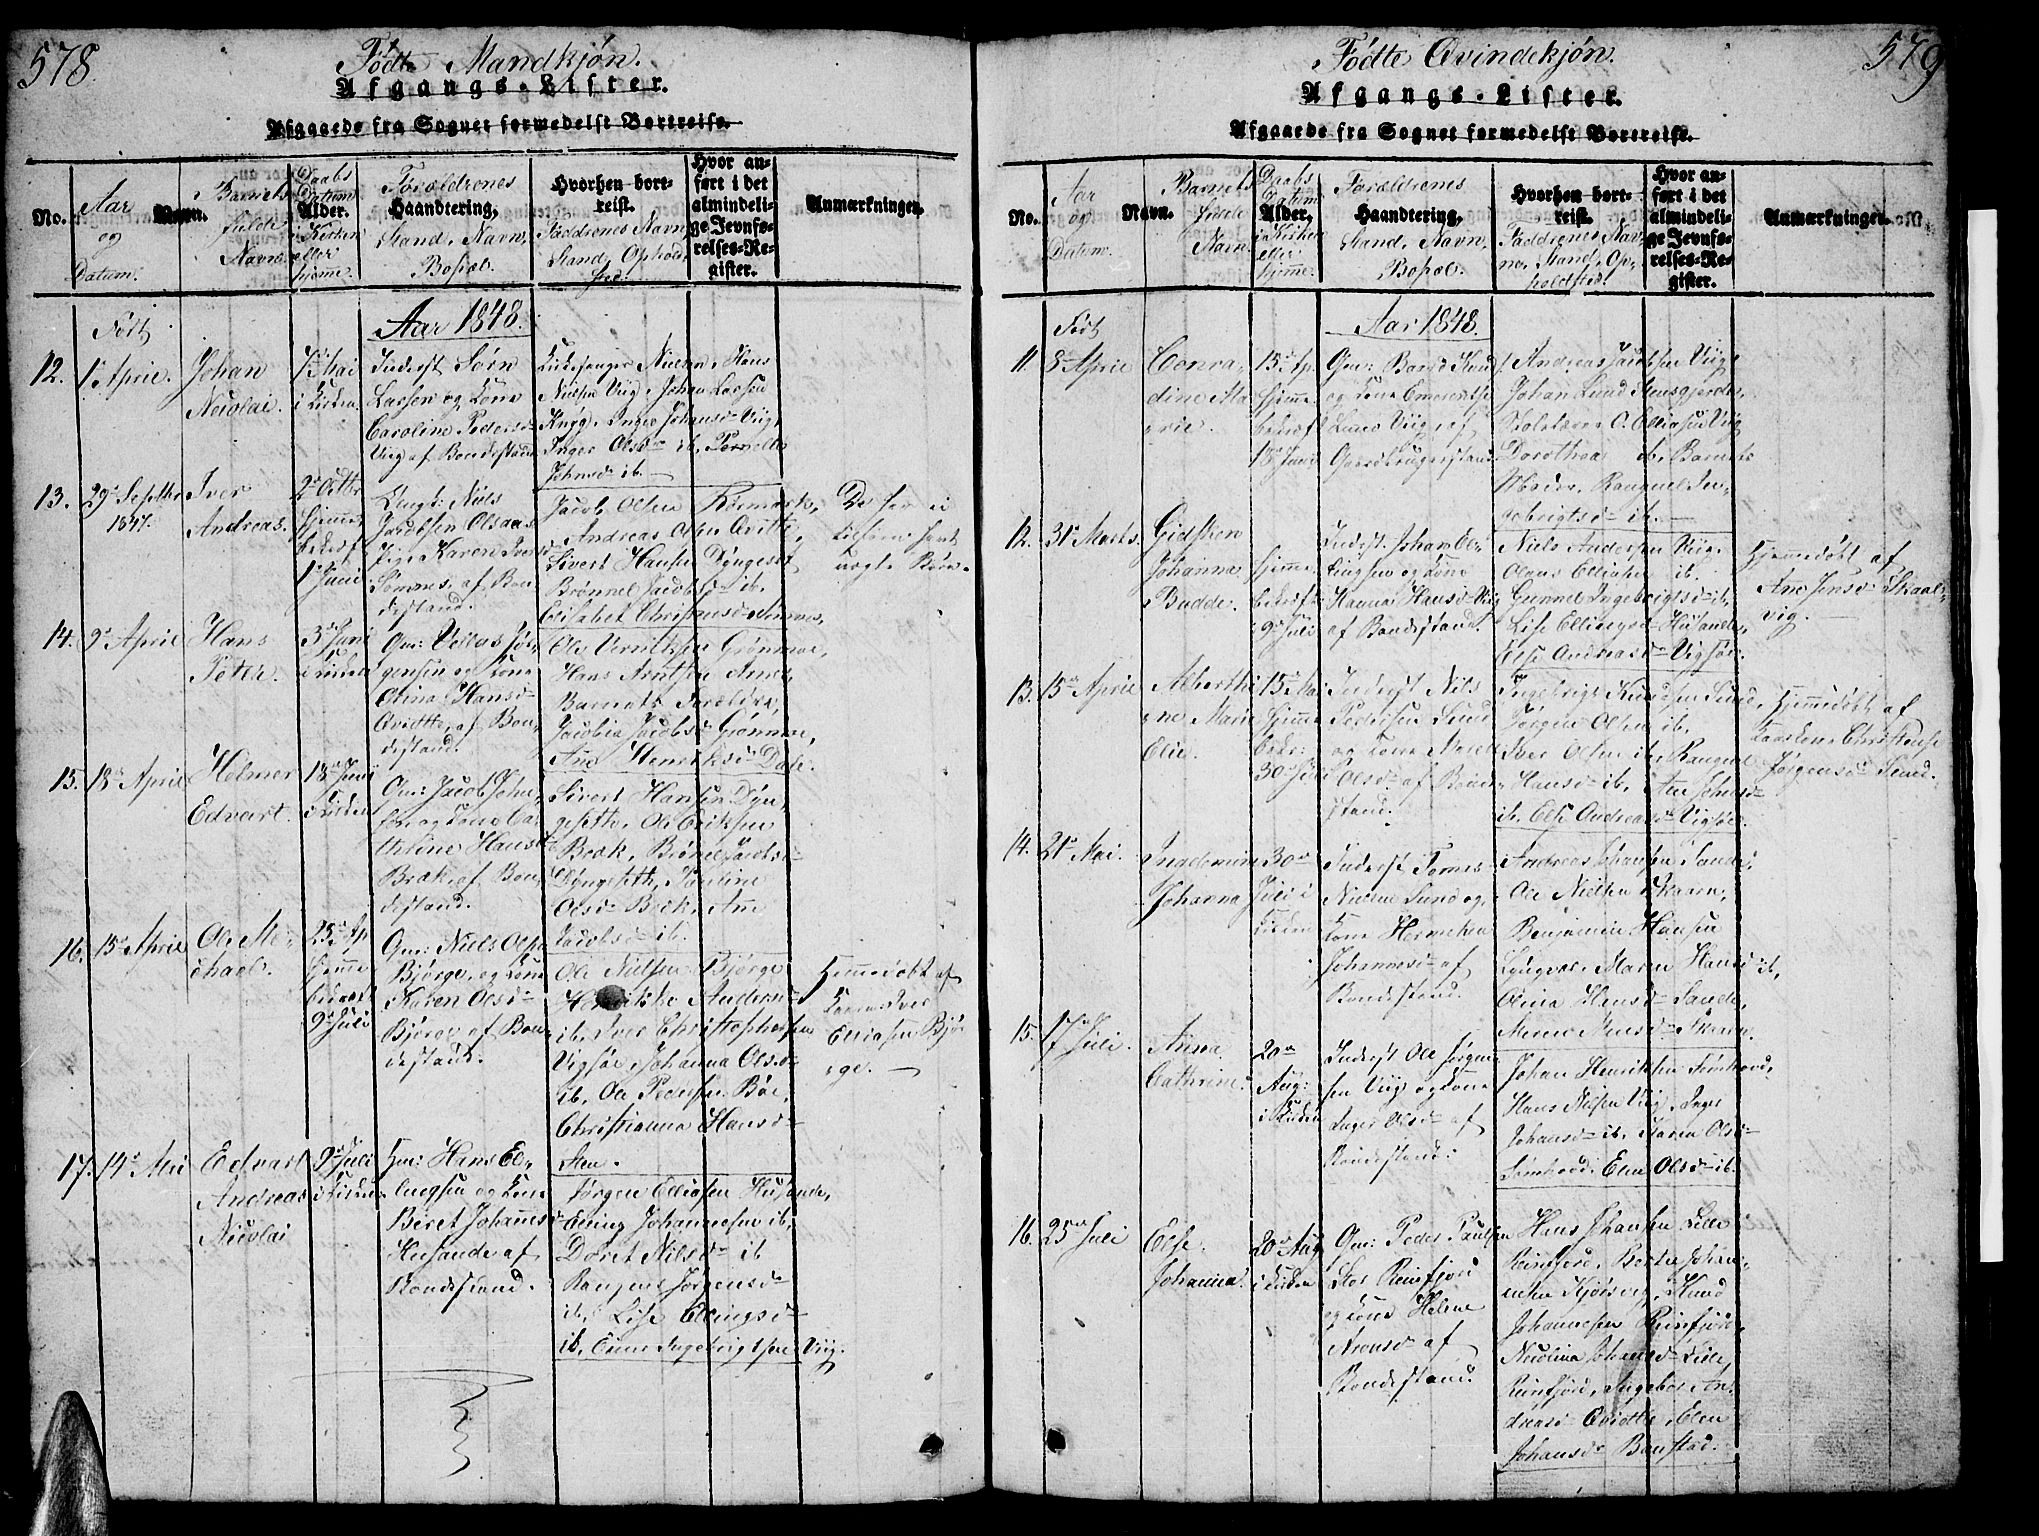 578.
Födte Mandkjön.
Afgangs-Lister.
Afgaaede fra Sognet formedelst Bortreise.
No.
Aar
og
Datum.
Navn.
Barnets
fulde
Navn.
Daabs
Datum
Alder.
i Kirken
eller
hjeme.
Forældrenes
Haandtering,
Stand, Navn,
Bopæl.
Hvorhen bort-
reist.
Faddrenes Navn,
Stand, Ophold,
sted.
Hvor an-
ført i det
almindeli-
ge Jevnfø-
relses-Re-
gister.
Anmærkninger.
Født
Aar 1848.
12.
1 April.
Johan
Nicolai.
1 Mai
i Kirken
Inderst Sørn
Lassen og Kone
Caroline Peders d
Viig af Bondestand
Kirkesanger Nielsen, Hans
Nielsen Viig, Johan Lassen
Inger Johansd Viig,
Inger Olsd ib, Pernille
Johnsd ib.
13.
29 Septbr
1847.
Iver
Andreas.
2 Octbr
hjemme,
bekræft
1 Juni
Ungk: Niels
Jacobsen Olsaas
Pige Karen Ivers
af Bon
destand.
Jacob Olsen
Andreas Olsen Qvitte,
Sivert Hansen Dyngeset
Brønnel Jacobsd ib.
Elisabet Christensd
14.
9 April
Hans
Peter.
3 Juni
i Kirken
Gm:
gensen og Kone
Olina Hansd
Qvidtte, af Bon
destand.
Ole Grønmoe,
Hans Arntsen
Barnets Forældre,
Jacobia Jacobsd Grønmoe,
Ane Henriksd Dale.
15.
18 April
Helmer
Edvart.
18 Juni
i Kirken
Gm: Jacob John-
sen og Kone Ca
thrine Hansd
Bræk, af Bon
destand.
Sivert Hansen Dyn
gesette, Ole Eriksen
Bræk, Brønel Jacobsd
Dyngeseth, Pauline
Olsd Bræk, Ane
Jacobsd ib.
16.
15 April
Ole Mi-
chael.
25 Ap
hjemme
bekræft
9 Juli
Gm: Niels Olsen
Bjørge, og Kone
Karen Olsd
Bjørge, af Bon
destand.
Ole Nielsen Bjørge
Andersd
ib, Iver Christophersen
Vigsøe, Johanna Olsd
ib, Ole Pedersen Bøe,
Christianna Hansd
Steu.
Hjemmedøbt af
Iver
Elliasen Bjør
ge.
17.
14 Mai
Edvart
Andreas
Nicolai
9 Juli
i Kirken
Hm: Hans El-
lingsen og Kone
Beret Johannes
Husande af
Bondestand.
Jørgen Elliasen Husande,
Elling Johannesen ib,
Doret Nilsd ib
Jørgensd
ib, Lise Ellingsd
ib, Ingebrigtsen Viig.
579
Födte Qvindekjön.
Afgangs-Lister.
Afgaaede fra Sognet formedelst Bortreise.
No.
Aar
og
Datum.
Navn.
Barnets
fulde
Navn.
Daabs
Datum
Alder,
i Kirken
eller
hjemme.
Forældrenes
Haandtering,
Stand, Navn,
Bopæl.
Hvorhen bort-
reist.
Faddrenes Nav-
ne, Stand, Op-
holdsted.
Hvor an-
ført i det
almindeli-
ge Jevnfø-
relses-Re-
gister.
Anmærkninger.
Født
Aar 1848.
11.
8 April
Conra-
dine Ma
grie.
15 Ap.
hjemme
bekræft
18 Juni
Gm: Knud
og Kone Emerentse
Lund Viig, af
Andreas Jacobsen Viig
Johan Lund
C. Elliasen Viig
Dorothea ib, Barnets
Moder, Ranguel In-
gebrigtsd ib.
12.
31 Marts.
Gidsken
Johanna
Budde.
hjemme
bekræft
9 Juli
Inderst. Johan El-
lingsen og Kone
Hanna Hansd Viig
af Bondestand.
Niels Andersen Viig.
Olaus Elliasen ib.
Gunnel Ingebrigtsd ib,
Lise Ellingsd Husande,
Else Andreasd Vigsøe.
Hjemmedøbt af
Ane Jensd Skaal-
vig.
13.
15 April
Alberthi
ne Marie
Elie.
15 Mai
hjemme
bekr:
30 Juli
Inderst Nils
Pedersen Sund
og Kone
Olsd af Bonde-
stand.
Ingebrigt Knudsen Sund,
Jørgen Olsen ib.
Iver Olsen ib, Ranguel
Hansd ib, Ane Johnsd
ib. Else Andreasd Vigsøe.
Hjemmedøbt af
Christense
Jørgensd Sund.
14.
21 Mai.
Johanna
30
Juli i
Kirken
Inderst Tomes
Nielsen Sund og
Kone
Johannesd af
Bondestand.
Andreas Johansen Sande,
Ole Nielsen Skaren,
Benjamin Hansen
Maren Hansd ib,
Olina Hansd Sande,
Skaren.
15.
17 Juli.
Anna
Cathrine.
20
Aug:
i Kirken
Inderst Ole Jørgen
sen Viig og Kone
Inger Olsd af
Bondestand.
Johan Henriksen
Hans Nielsen Viig, Inger
Johansd ib, Karen Olsd
Elen Olsd ib.
16.
25 Juli
Else
Johanna.
20 Aug
i Kirken
Gm: Peder Paulsen
Stor Reinfjord
og Kone Helene
Aronsd af
Bondestand.
Hans Johansen Lille
Reinfjord,
Kjørsvig, Knud
Johannesen Reinfjord,
Nicolina Johansd Lille
Reinfjord, Ingebor An-
dreasd Qvidtte, Elen
Johansd